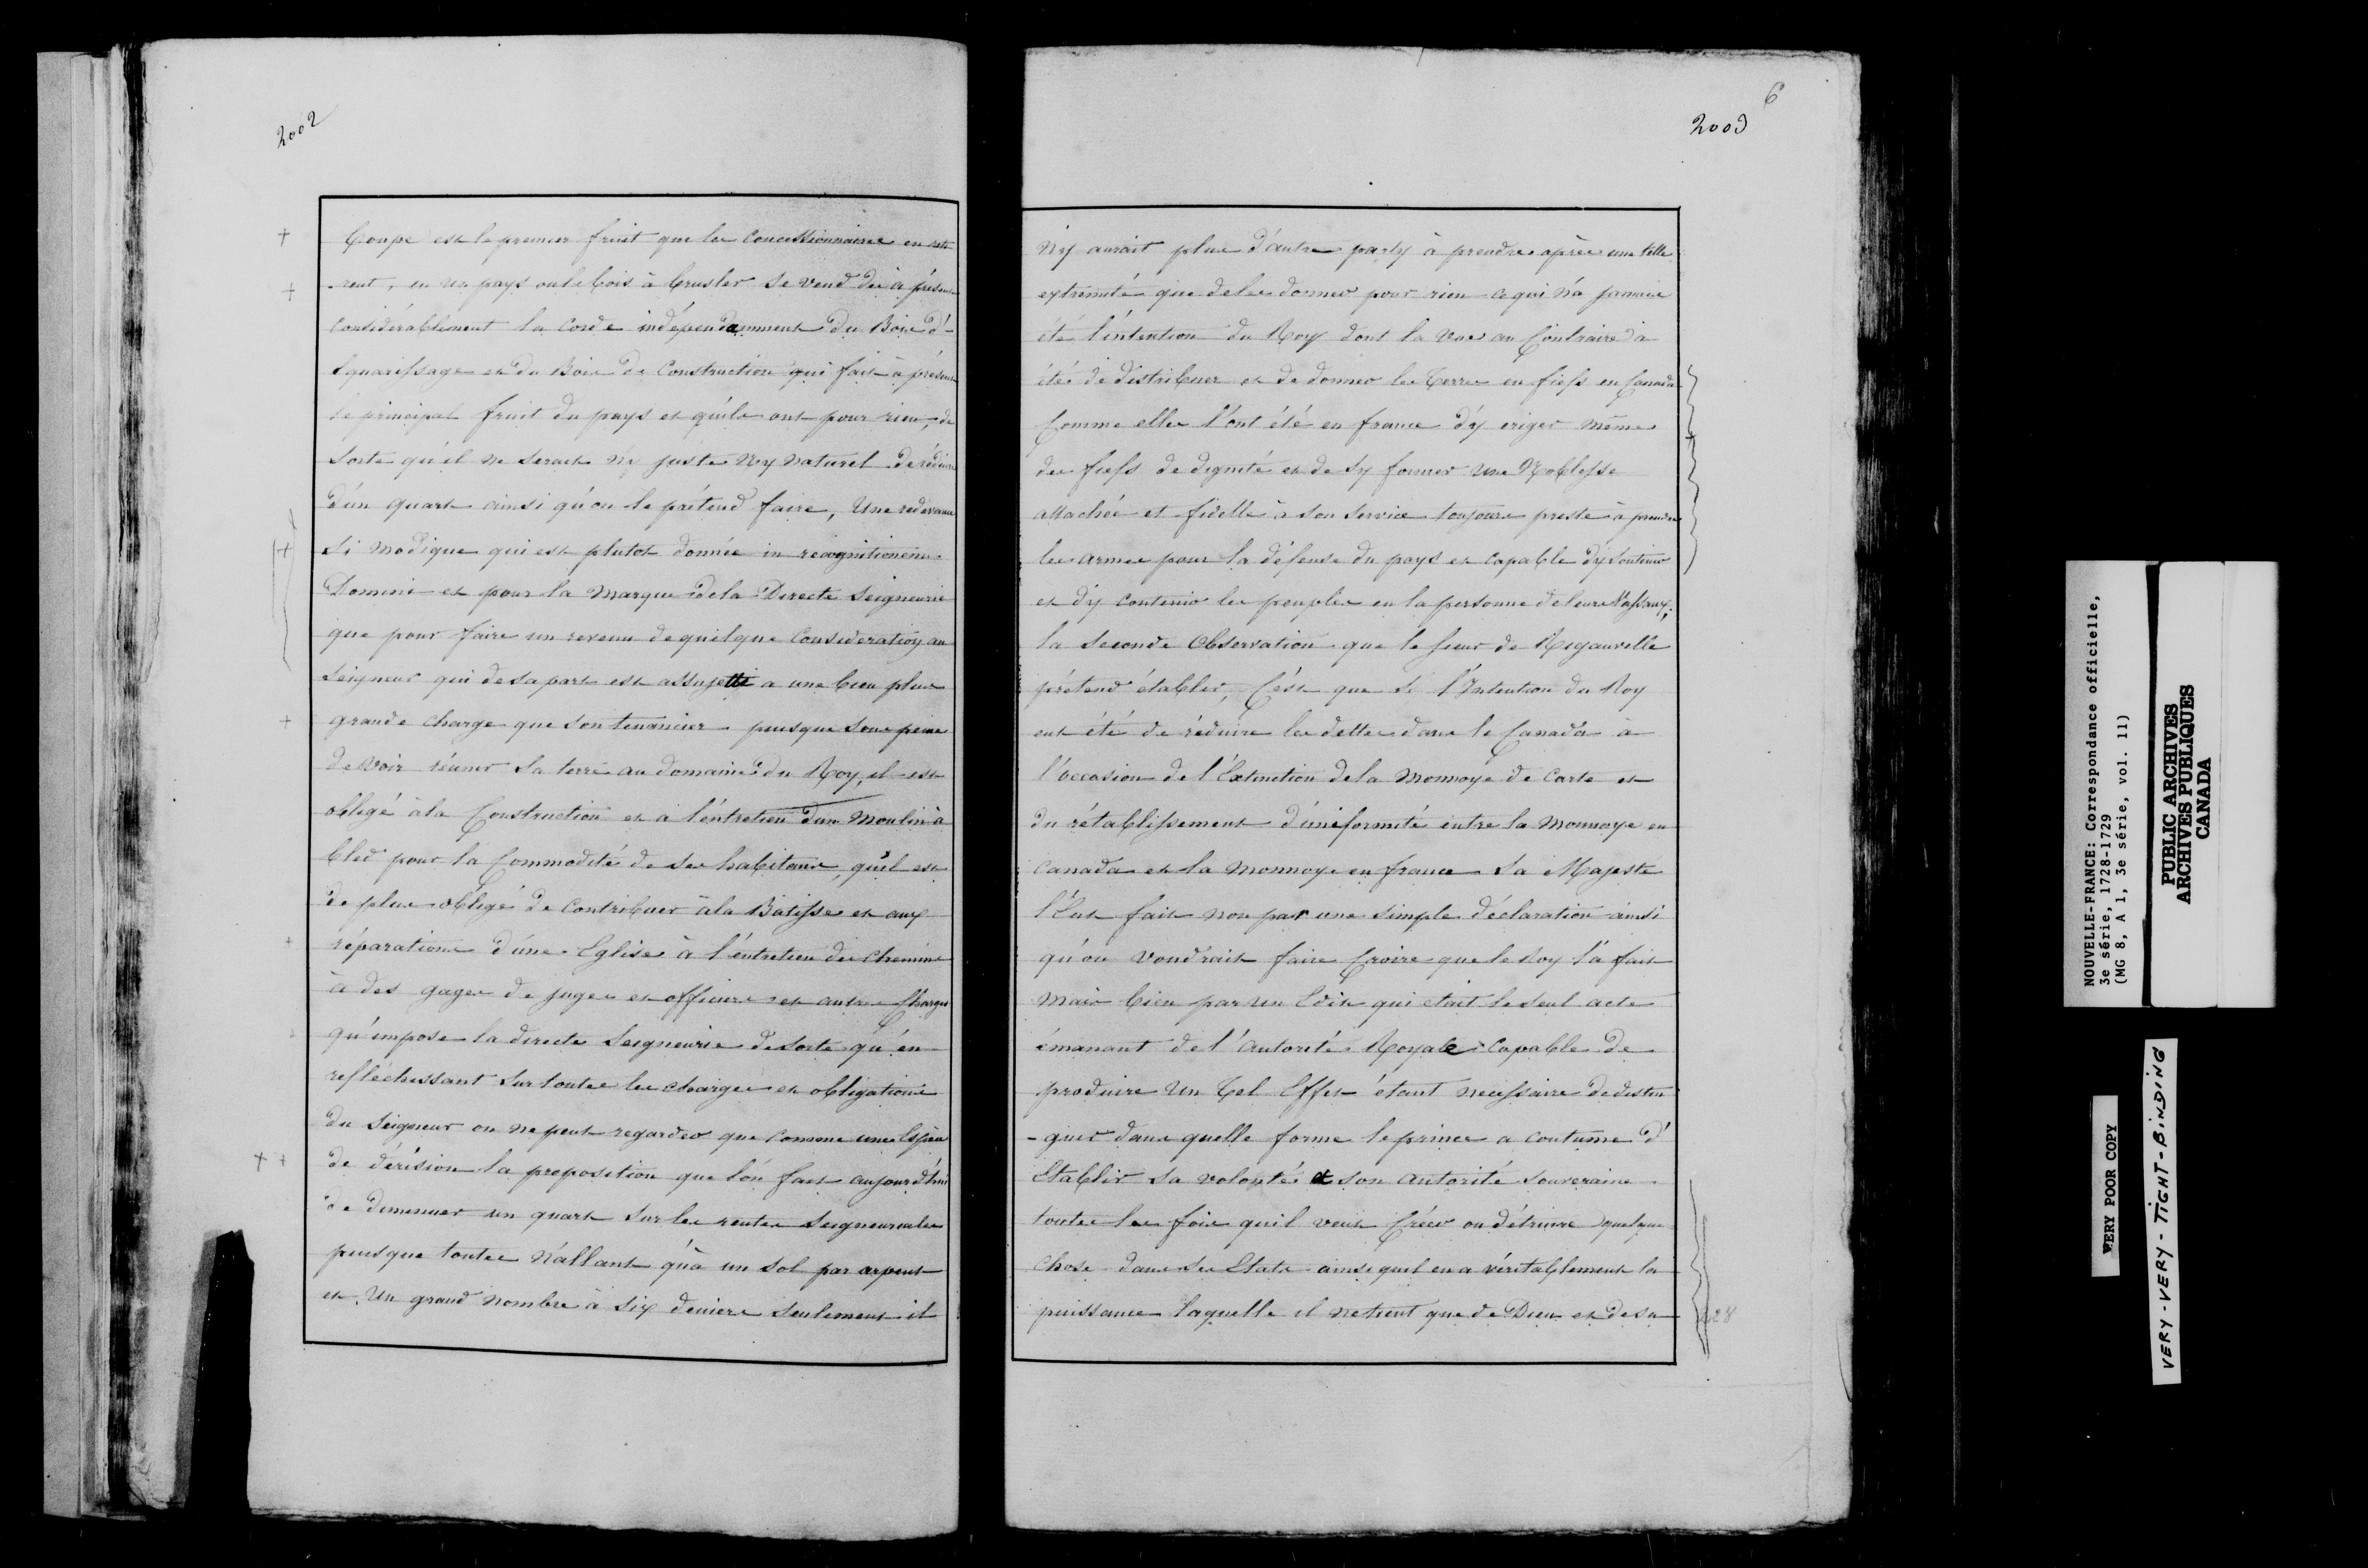 2002
Coupe est le premier fruit que les Concessionnaires en reti
-rent, en un pays ou le bois à brusler se vend dès à présent
Considérablement la Corde indépendamment du Bois d'é-
squarissage et du Bois de Construction qui fait à présent
le principal fruit du pays et qu'ils ont pour rien, de
sorte qu'il ne serait ny juste ny naturel de réduire
d'un quart ainsi qu'on le prétend faire, Une redevance
si modique qui est plutot donnée in recognitionem
Domini et pour la marque de la Directe Seigneurie
que pour faire un revenu de quelque Consideration au
Seigneur qui de sa part est assujetti a une bien plus
grande charge que son tenancier puisque sous peine
de voir réunir sa terre au domaine du Roy, il est
obligé à la Construction et a l'entretien d'un Moulin à
bled pour la Commodité de ses habitans, qu'il est
de plus obligé de Contribuer à la Batisse et aux
réparations d'une Eglise à l'entretien des chemins
à des gages de juges et officiers et autres Charges
qu'impose la directe Seigneurie de sorte qu'en
refléchissant sur toutes les charges et obligations
du Seigneur on ne peut regarder que comme une Espèce
de dérision la proposition que l'on fait aujourd'hui
de diminuer un quart sur les rentes Seigneuriales
puisque toutes n'allant qu'à un sol par arpent
et Un grand nombre à six deniers seulement il
6
2003
n'y aurait plus d'autre party à prendre après une telle
extrémité que de les donner pour rien ce qui n'a jamais
été l'intention du Roy dont la vue au Contraire a
été de distribuer et de donner les terres en fiefs en Canada
Comme elles l'ont été en france d'y eriger même
des fiefs de dignité et de s'y former Une Noblesse
attachée et fidelle à son service toujours preste à prendre
les armes pour la défense du pays et capable d'y soutenir
et d'y contenir les peuples en la personne de leurs Vassaux;
la seconde Observation que le sieur de Rigauville
prétend établir, C'est que si l'Intention du Roy
eut été de réduire les dettes dans le Canada à
l'occasion de l'Extinction de la monnoye de Carte et
du rétablissement d'uniformité entre la Monnoye en
Canada et la monnoye en france Sa Majesté
l'Eut fait non par une simple déclaration ainsi
qu'on voudrait faire Croire que le Roy l'a fait
mais bien par un Edit qui était le seul acte
émanant de l'autorité Royale Capable de
produire Un tel Effet étant necessaire de distin
-guer dans quelle forme le prince a coutume d'
Etablir sa volonté et son autorité souveraine
toutes les fois qu'il veut Créer ou détruire quelque
chose dans ses Etats ainsi qu'il en a véritablement la
puissance laquelle il ne tient que de Dieu et de sa
NOUVELLE-FRANCE: Correspondance officielle,
3e série, 1728-1729
(MG 8, A 1, 3e série, vol. 11)
PUBLIC ARCHIVES
ARCHIVES PUBLIQUES
CANADA
VERY POOR COPY
VERY-VERY-TIGHT-BINDING